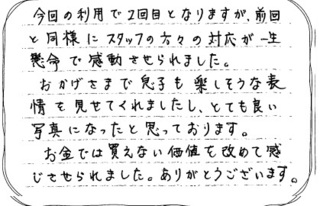 今回の利用で2回目となりますが、前回
と同様にスタッフの方々の対応が一生
懸命で感動させられました。
おかげさまで息子も楽しそうな表
情を見せてくれましたし、とても良い
写真になったと思っております。
お金では買えない価値を改めて感
じさせられました。ありがとうございます。